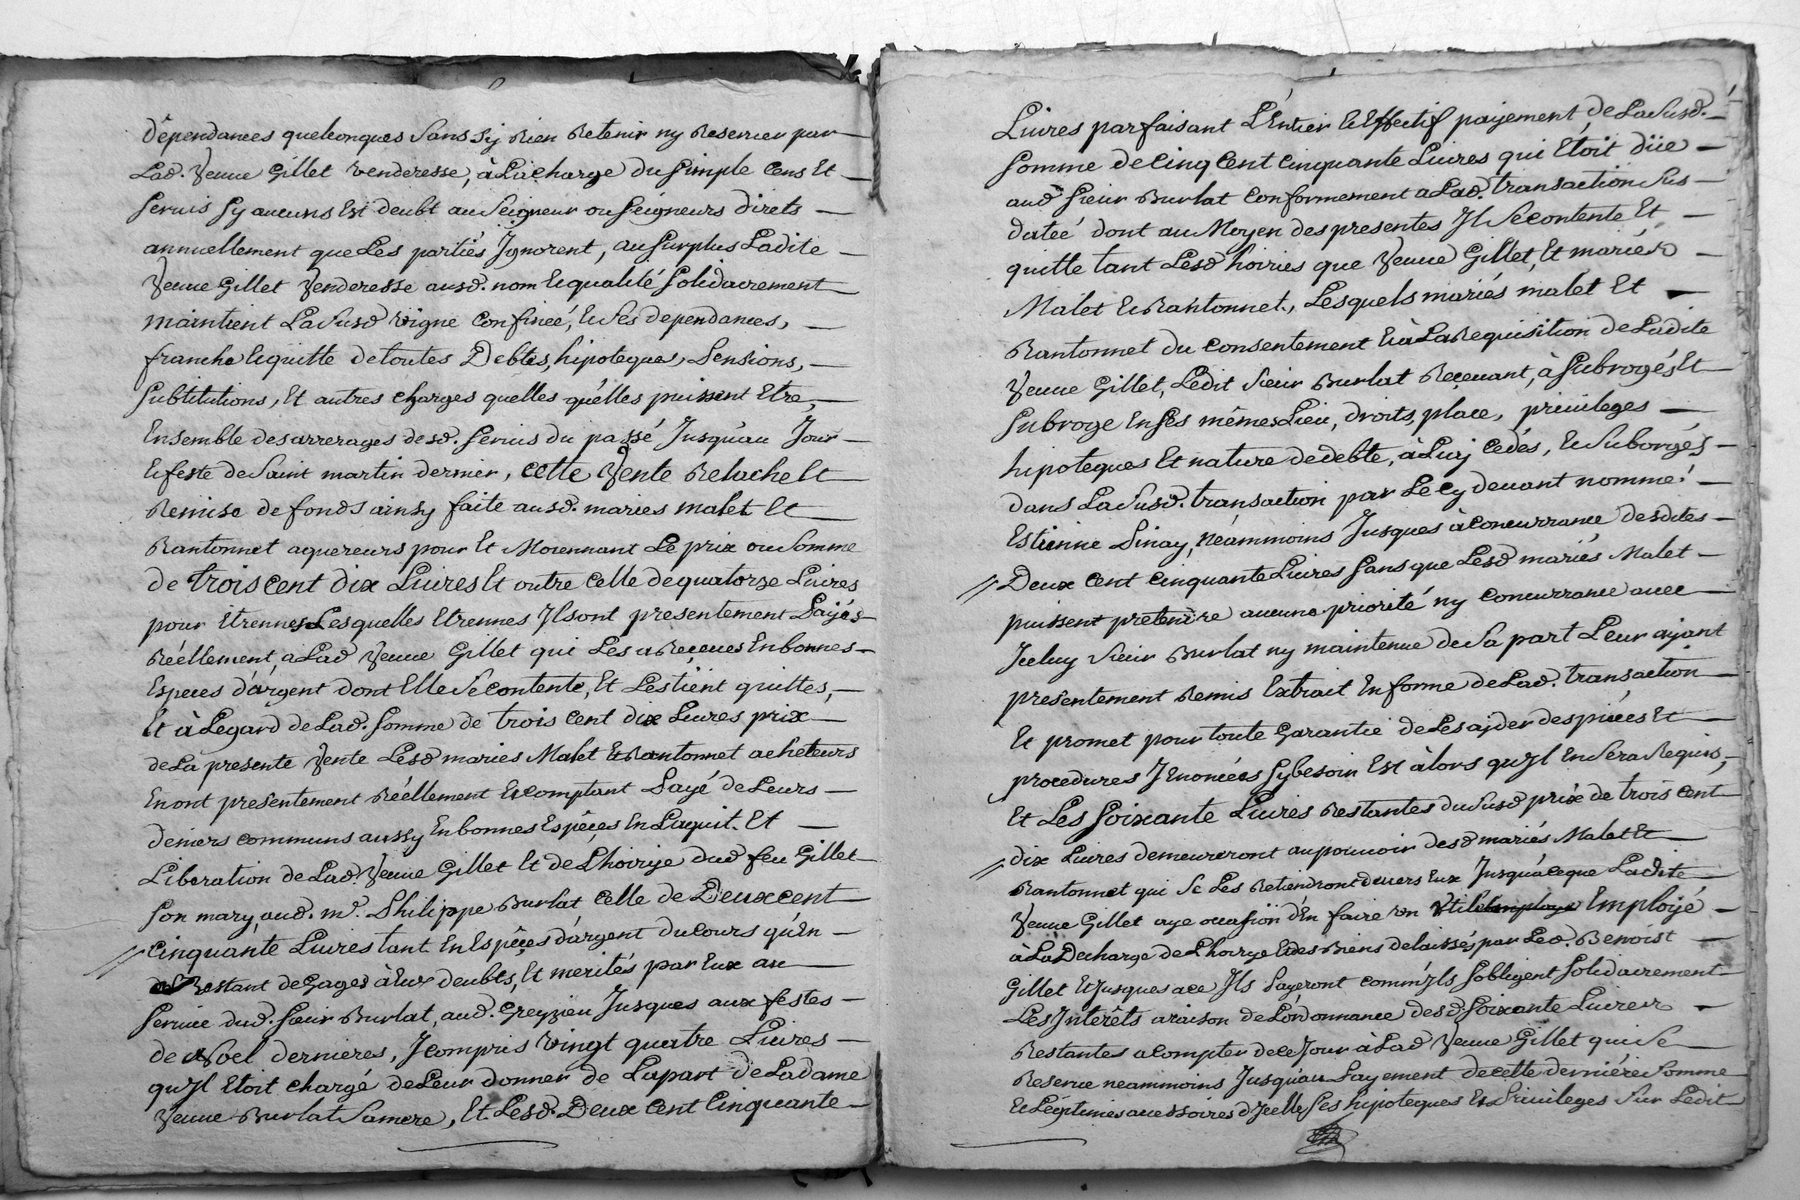 dépendances quelconques sans sy Rien Retenir ny Reserver par
Lad. Veuve Gillet venderesse, à La charge du simple Cens Et
servis sy aucuns Est deubt au Seigneur ou Seigneurs direts
annuellement que Les partiés Jgnorent, au surplus Ladite
Veuve Gillet Venderesse ausd. nom Et qualité Solidairement
maintient La susd vigne confineé, Et ses dependances,
franche Et quitte de toutes Debtes, hipoteques, Pensions,
substitutions, Et autres charges quelles qu'elles puissent Etre,
Ensemble des arrerages desd. servis du passé Jusqu'au Jour
Et feste de Saint martin dernier, cette Vente Relache Et
Remise de fonds ainsy faite ausd. maries malet Et
Rantonnet aquereurs pour Et Moiennant Le prix ou Somme
de trois cent dix Livres Et outre Celle de quatorze Livres
pour Etrennes Lesquelles Etrennes Jls ont presentement Payés
Réellement, a Lad Veuve Gillet qui Les a Reçeues En bonnes
Especes d'argent dont Elle Se contente, Et Les tient quittes,
Et à L'egard de Lad. Somme de trois cent dix Livres prix
de La presente Vente Lesd maries Malet Et Rantonnet acheteurs
En ont presentement Réellement Et comptant Payé de Leurs
deniers communs aussy En bonnes Espêçes En L'aquit. Et
Liberation de Lad. Veuve Gillet Et de L'hoirije dud feu Gillet
son mary, aud. mr. Philippe Burlat Celle de Deux cent
cinquante Livres tant En Espêçes d'argent du Cours qu'En
Restant de Gages à Eux deubts, Et merités par Eux au
service dud. sieur Burlat, aud. Greyzieu Jusques aux festes
de Noel dernieres, Jcompris vingt quatre Livres
qu'Jl Etoit chargé de Leur donner de La part de La dame
Veuve Burlat Sa mere, Et Lesd. Deux Cent Cinquante
Livres parfaisant L'Entier Et Effectif paijement de La Susd.
somme de Cinq Cent cinquante Livres qui Etoit düe
aud sieur Burlat Conformement a Lad. transaction Sus
datéé dont au Moyen des presentes Jl Se contente Et
quitte tant Lesd hoiries que Veuve Gillet, Et mariés
Malet Et Rantonnet., Lesquels mariés malet Et
Rantonnet du Consentement Et à La Requisition de Ladite
Veuve Gillet, Ledit Sieur Burlat Reçevant, à subrogés Et
subroge En ses mêmes Lieu, droits, place, privileges
hipoteques Et nature de debte, à Luij Cedés, Et Suborgés
dans La Susd. transaction par Le Cy devant nommé
Estienne Pinay, néammoins Jusques à Concurrance Desdites
Deux cent cinquante Livres sans que Lesd mariés Malet
puissent pretendre aucune priorité ny Concurrance avec
Jceluy Sieur Burlat ny maintenue de Sa part Leur aijant
presentement Remis Extrait En forme de Lad. transaction
Et promet pour toute Garantie de Les aijder des pieces Et
procedures J Enoncéés sy besoin Est à lors qu'Jl En Sera Requis,
Et Les soixante Livres Restantes du Susd prix de trois cent
dix Livres demeureront au pouvoir desd mariés Malet Et
Rantonnet qui Se Les Retiendront devers Eux Jusqu'a ce que Ladite
Veuve Gillet aye occasion d'En faire un Utile Employé
à La Decharge de L'hoirye Et des Biens delaissés par Led. Benoist
Gillet Et Jusques a ce Jls Payeront comm'Jls s'obligent Solidairement
Les Jnterêts a raison de L'ordonnance desd. soixante Livres
Restantes a compter de ce Jour à Lad Veuve Gillet qui Se
Reserve neammoins Jusqu'au Payement de cette derniére Somme
Et Légitimes accessoires d'Jcelle ses hipoteques Et Privileges Sur Ledit